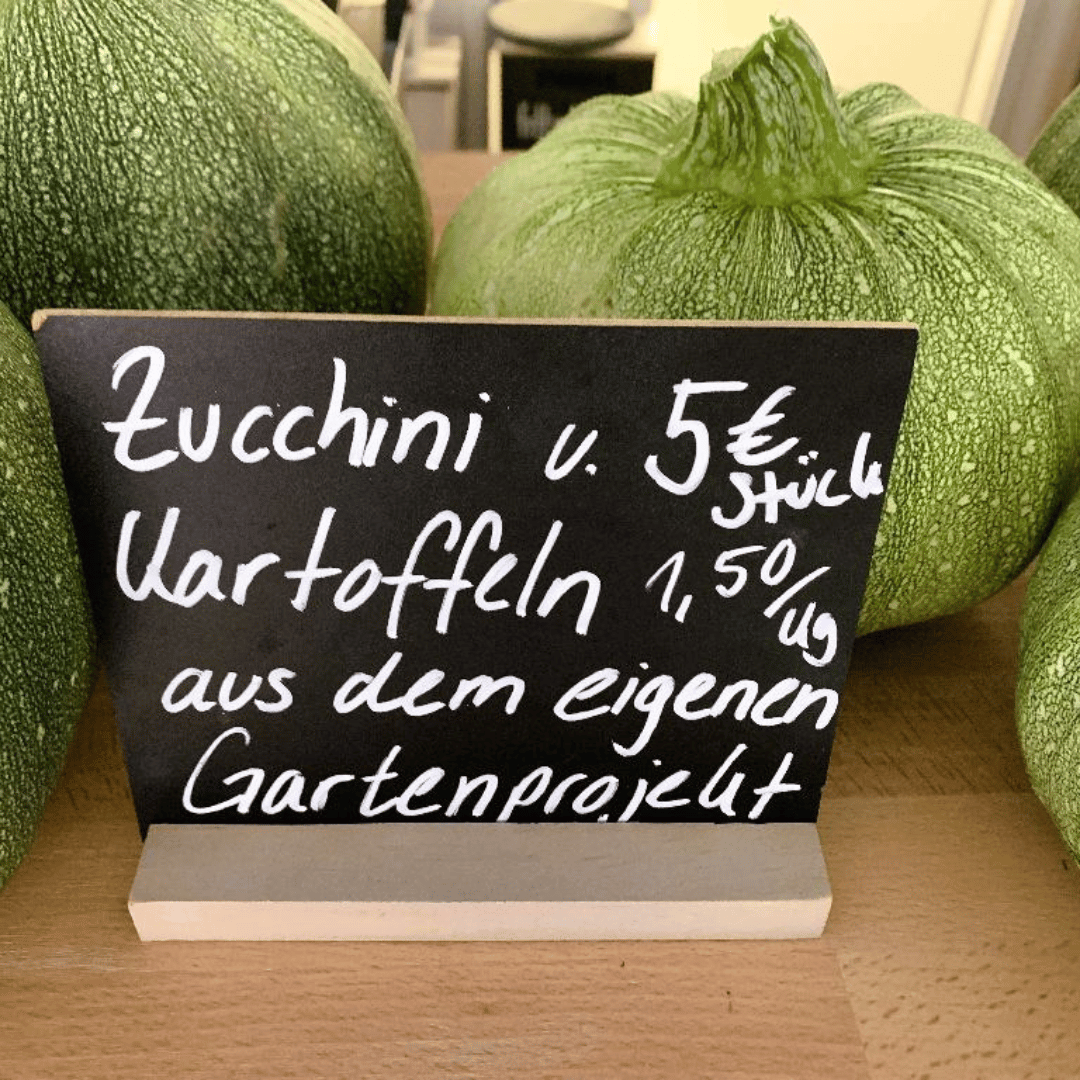 Zucchini u. 5€
Stück
Kartoffeln 1,50/kg
aus dem eigenen
Gartenprojekt